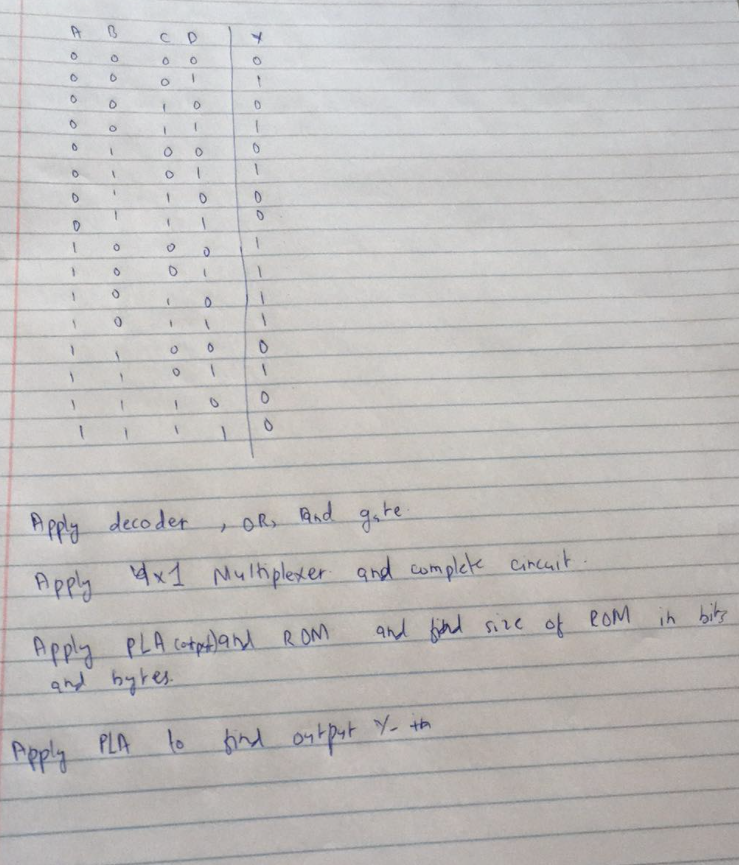 A B C D Y
0 0 0 0 0
0 0 0 1 1
0 0 1 0 0
0 0 1 1 1
0 1 0 0 0
0 1 0 1 1
0 1 1 0 0
0 1 1 1 0
1 0 0 0 1
1 0 0 1 1
1 0 1 0 1
1 0 1 1 1
1 1 0 0 0
1 1 0 1 1
1 1 1 0 0
1 1 1 1 0
Apply decoder, OR, and gate.
Apply 4x1 Multiplexer and complete circuit.
Apply PLA (otpt) and ROM and find size of ROM in bits
and bytes.
Apply PLA to find output